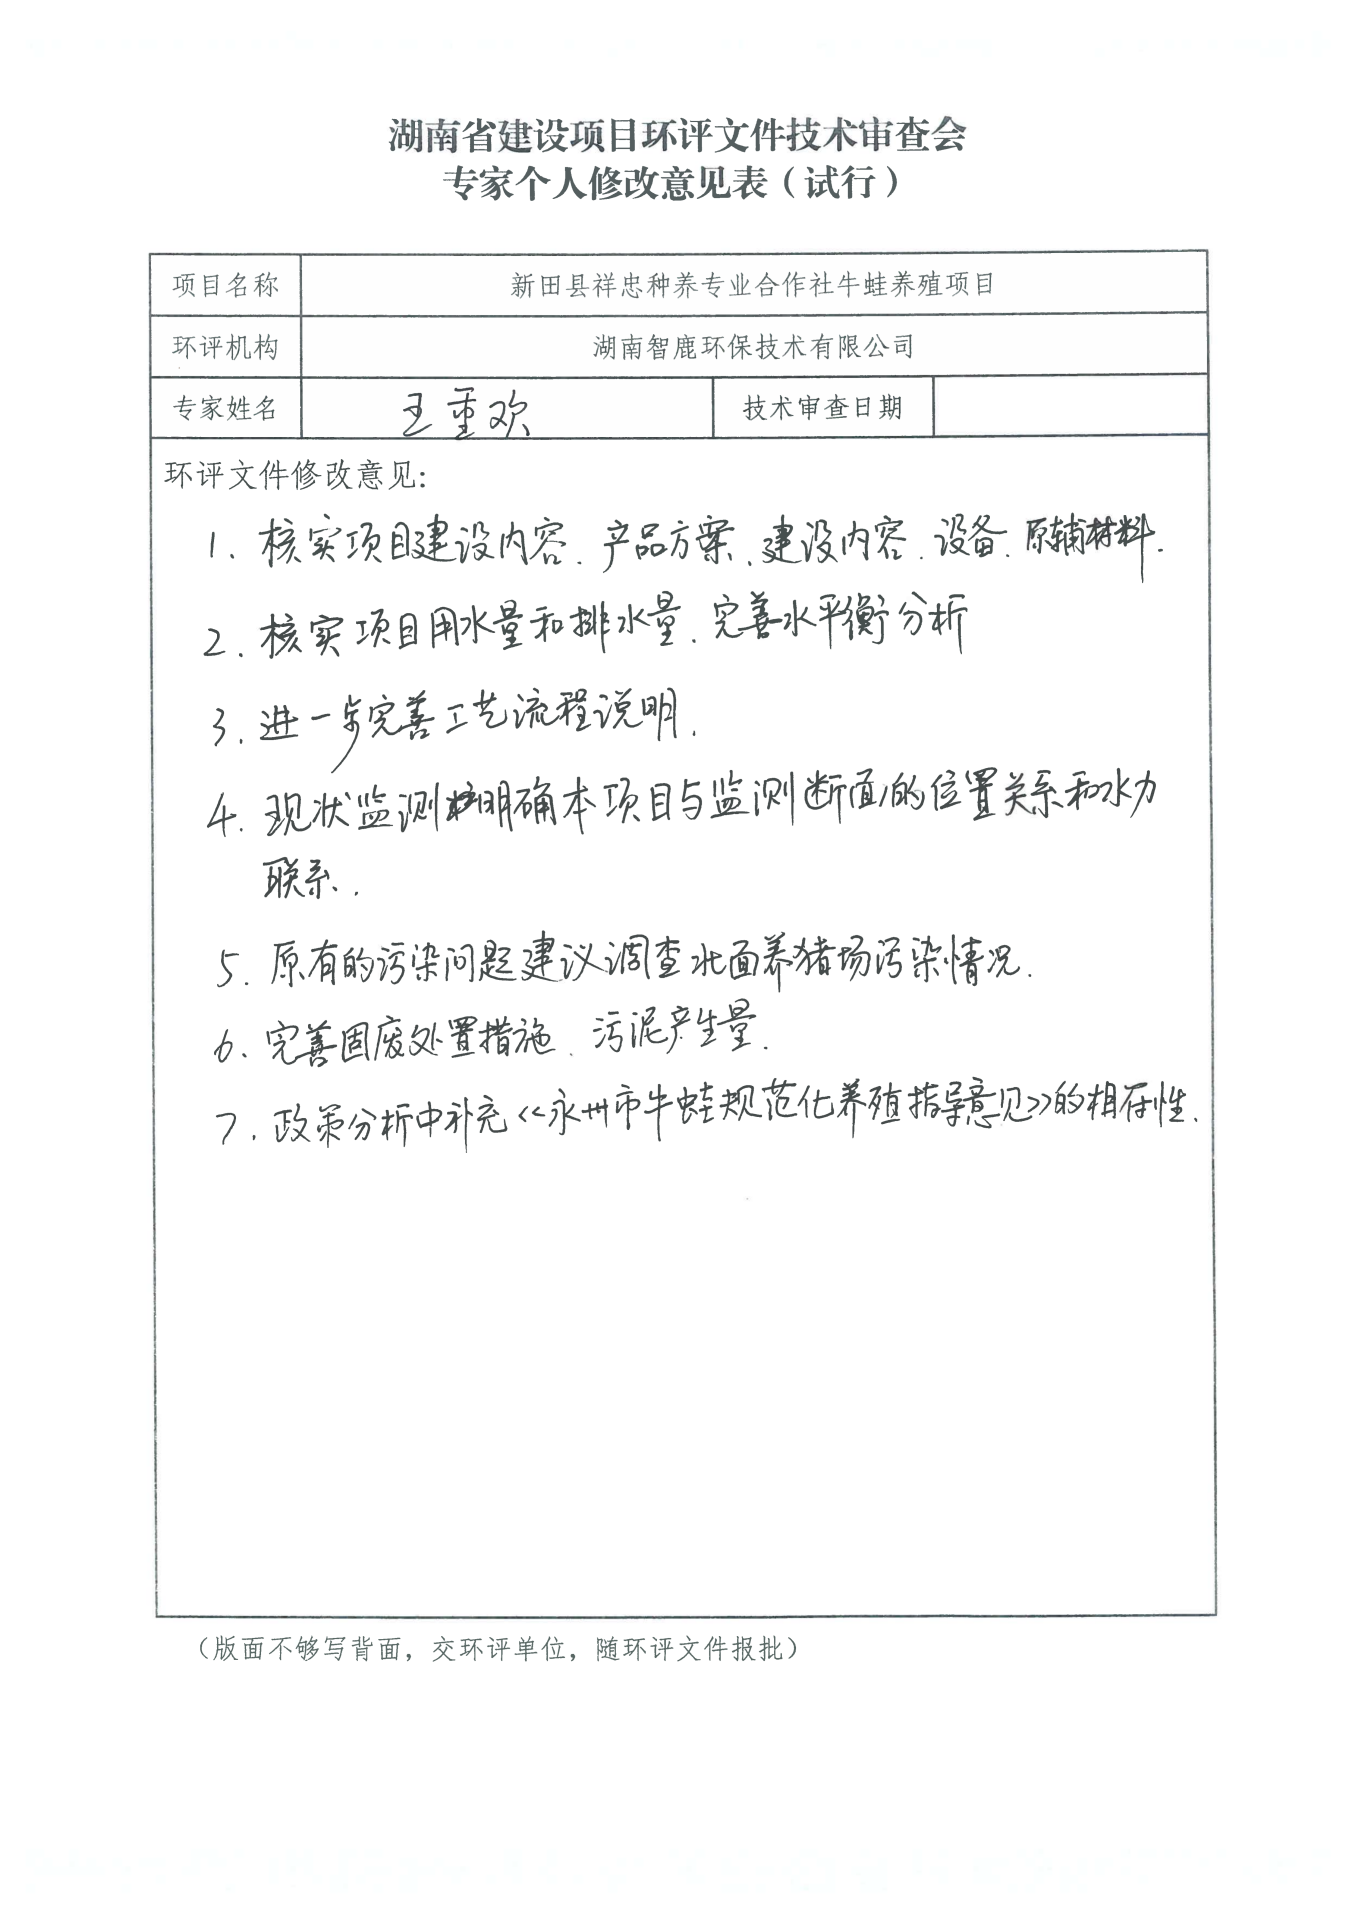 湖南省建设项目环评文件技术审查会
专家个人修改意见表（试行）
项目名称 新田县祥忠种养专业合作社牛蛙养殖项目
环评机构 湖南智鹿环保技术有限公司
专家姓名 王重欢 技术审查日期
环评文件修改意见：
1. 核实项目建设内容、产品方案、建设内容、设备、原辅材料.
2. 核实项目用水量和排水量、完善水平衡分析
3. 进一步完善工艺流程说明.
4. 现状监测明确本项目与监测断面的位置关系和水力
联系.
5. 原有的污染问题建议调查北面养猪场污染情况.
6. 完善固废处置措施、污泥产生量.
7. 政策分析中补充《永州市牛蛙规范化养殖指导意见》的相存性.
（版面不够写背面，交环评单位，随环评文件报批）